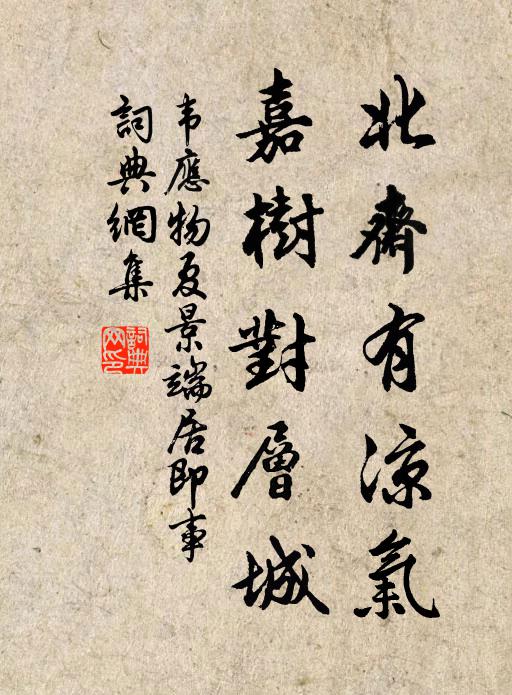 北齋有涼氣
嘉樹對層城
韦應物夏景端居即事
詞典網集
詞典网印